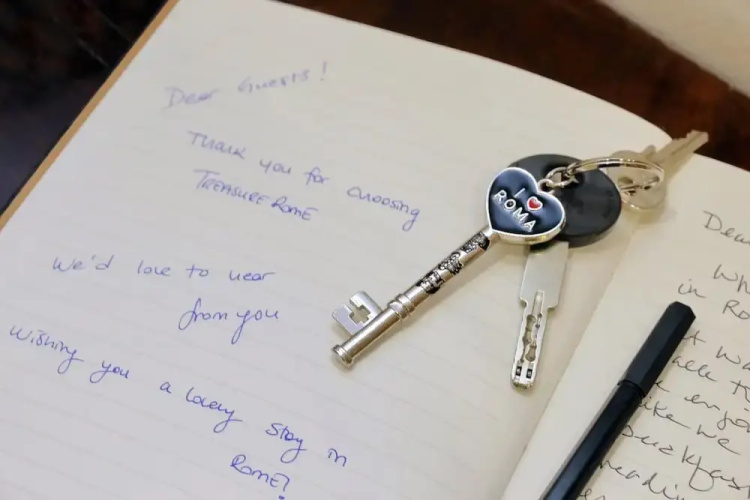 Dear Guests!
Thank you for choosing
TREASURE ROME
We'd love to hear
from you
Wishing you a lovely stay in
ROME!
I
ROMA
Dea
Wh
in Ro
t wa
enjo
like we